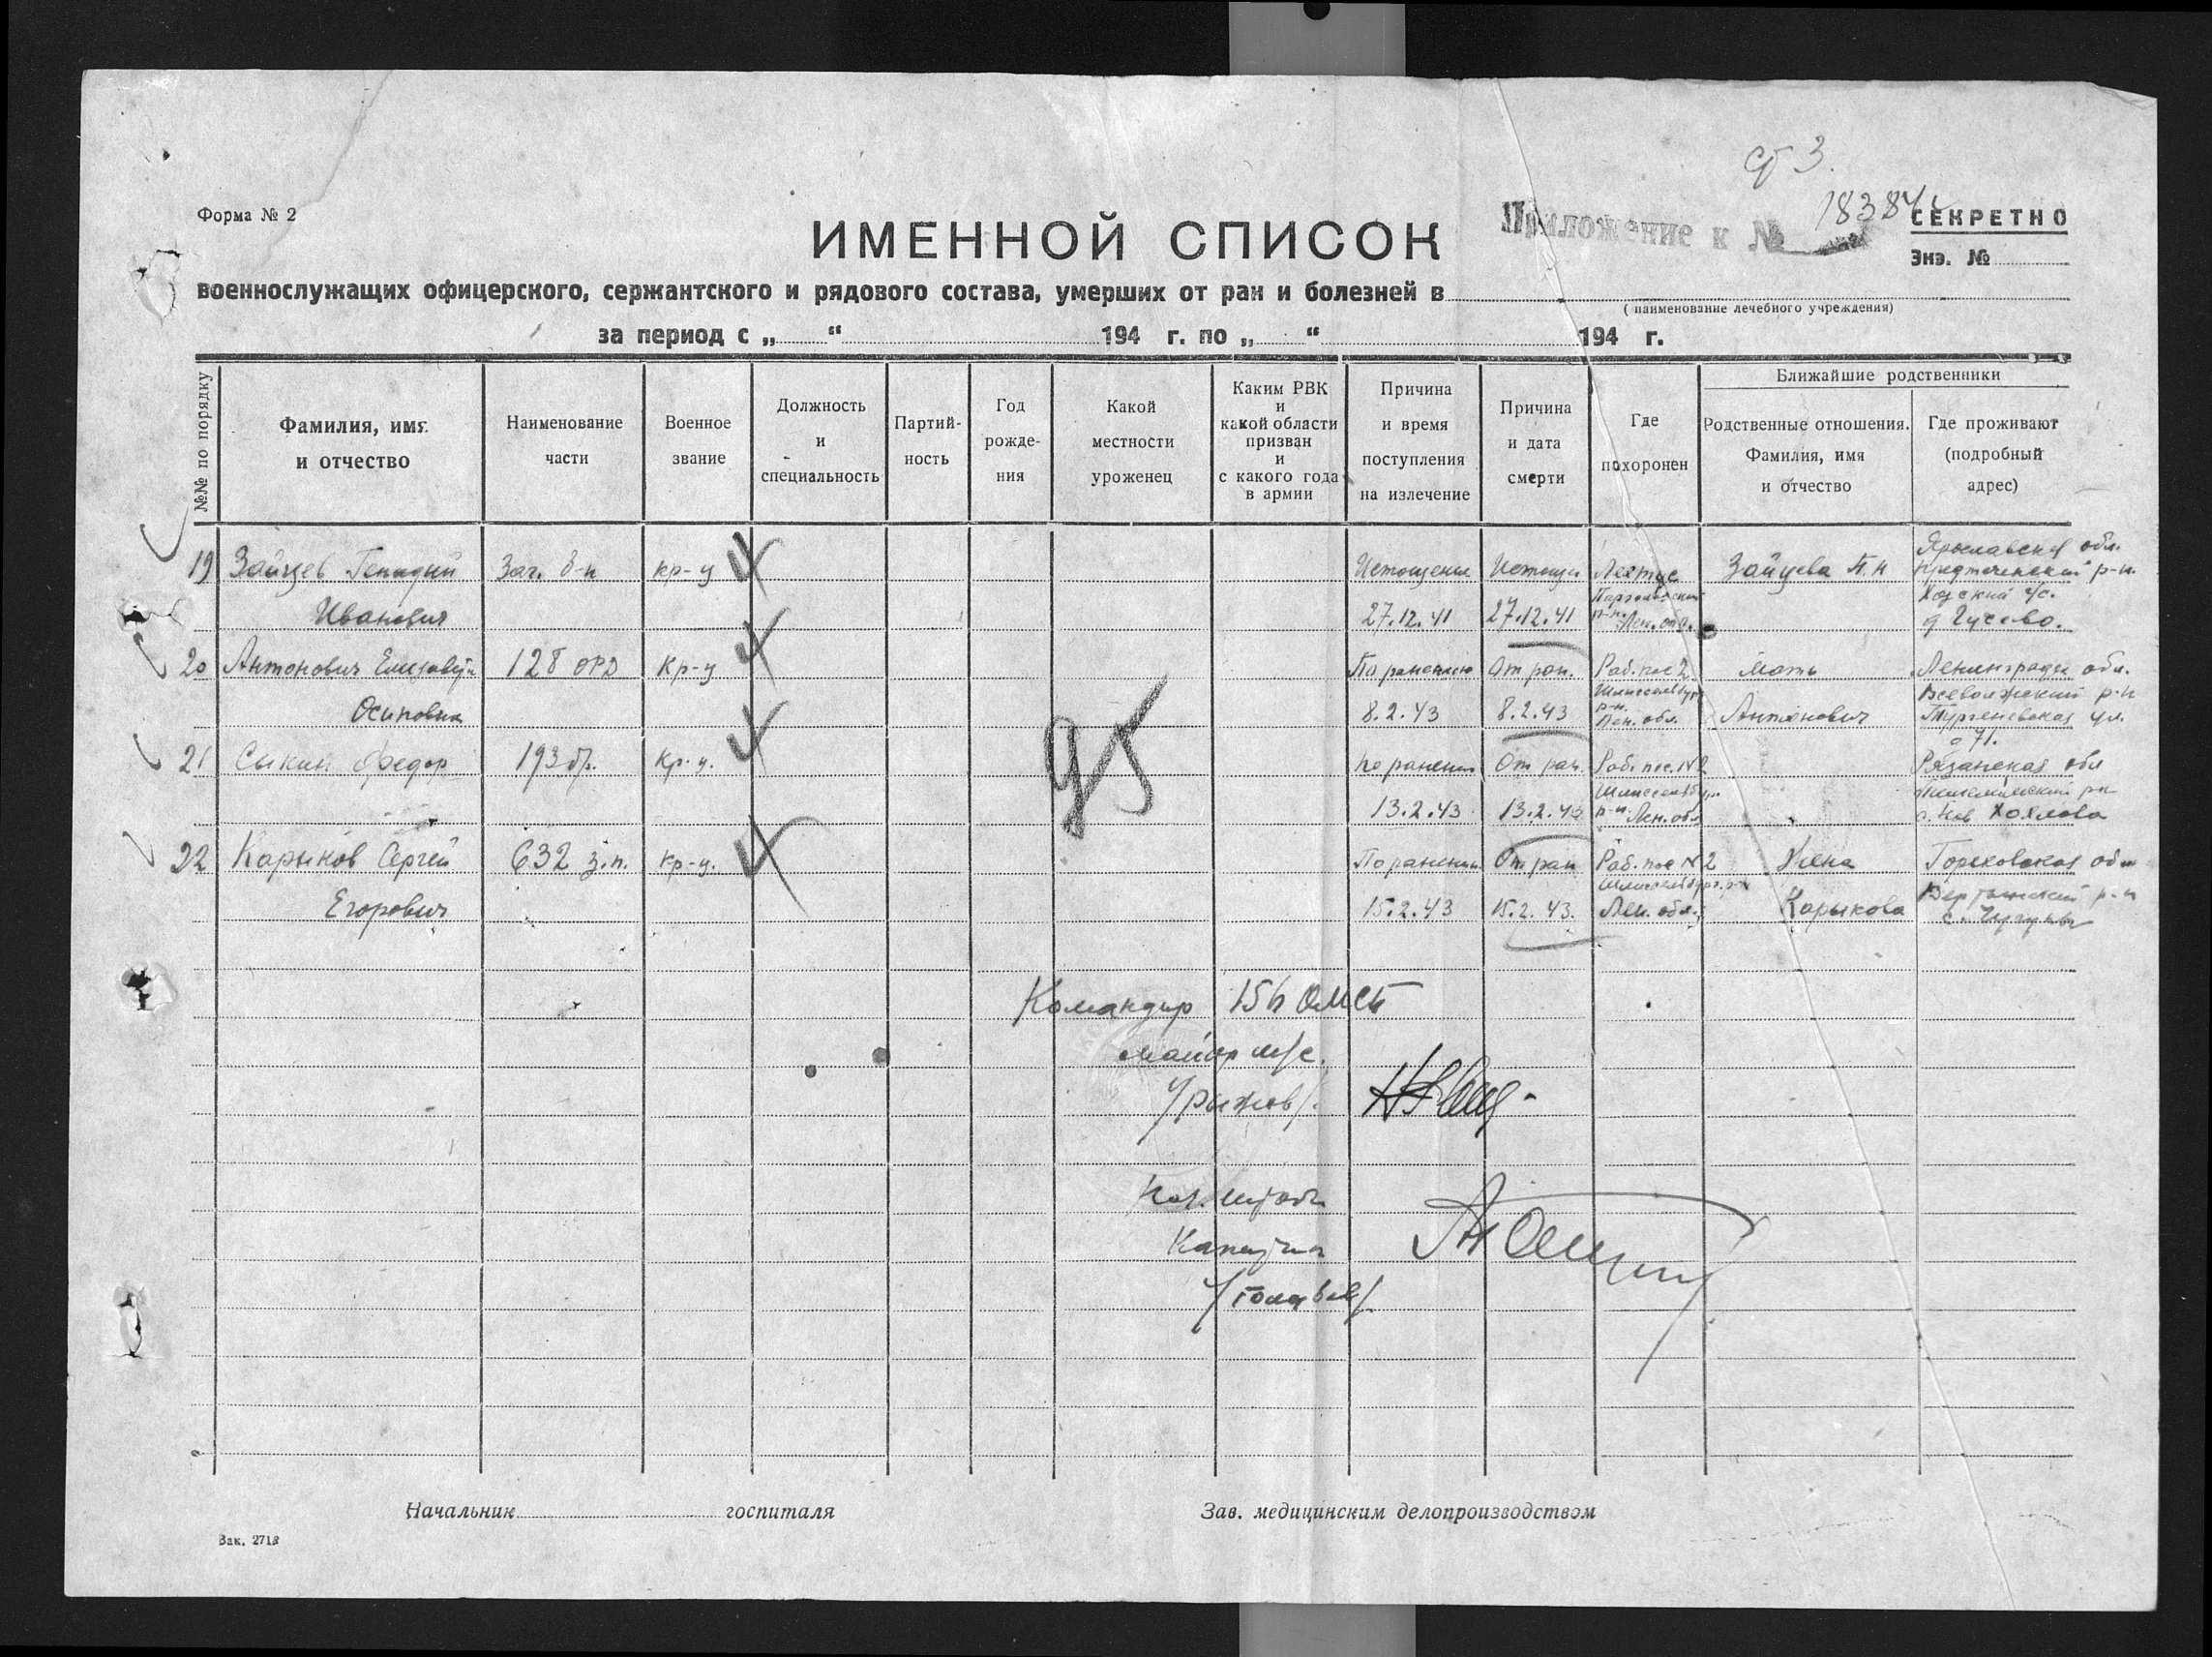 ср 3.
18384с
Форма № 2
Приложение к №
СЕКРЕТНО
ИМЕННОЙ СПИСОК
Экз. №
военнослужащих офицерского, сержантского и рядового состава, умерших от ран и болезней в
(наименование лечебного учреждения)
за период с „ “ 194 г. по „ “ 194 г.
№№ по порядку
Фамилия, имя
и отчество
Наименование
части
Военное
звание
Должность
и
специальность
Партий-
ность
Год
рожде-
ния
Какой
местности
уроженец
Каким РВК
и
какой области
призван
и
с какого года
в армии
Причина
и время
поступления
на излечение
Причина
и дата
смерти
Где
похоронен
Ближайшие родственники
Родственные отношения.
Фамилия, имя
и отчество
Где проживают
(подробный
адрес)
19 Зайцев Генадий
Иванович
Заг. б-н
кр-ц
Истощение
27.12.41
27.12.41
Парголовский
р-н.
Лен. обл.
Зайцева П. Н
Ярославская обл.
р-н.
с/с.
д Гусево.
20 Антонович Елизавета
Осиповна
128 ОРД
кр-ц
По ранению
8.2.43
От ран.
8.2.43
Раб. пос 2.
Шлиссельбург
р-н.
Лен. обл.
мать
Антонович
Ленинградск обл.
Всеволжский р-н
Тургеневская ул.
д 71.
21 Сыкин Федор
193 бр.
кр-ц.
по ранению
13.2.43
От ран
13.2.43
Раб. пос. №2
Шлиссельбург
р-н. Лен. обл
Рязанская обл
р-н
Хохлово
22 Карынов Сергей
Егорович
632 з.п.
кр-ц.
По ранению
15.2.43
От ран
15.2.43.
Раб. пос №2
Лен. обл.
Жена
Карыкова
Горьковская обл
р-н
95
Командир
майор м/с.
/Рыжов/.
Нач. штаба
Капитан
Начальник госпиталя
Зав. медицинским делопроизводством
Зак. 2718